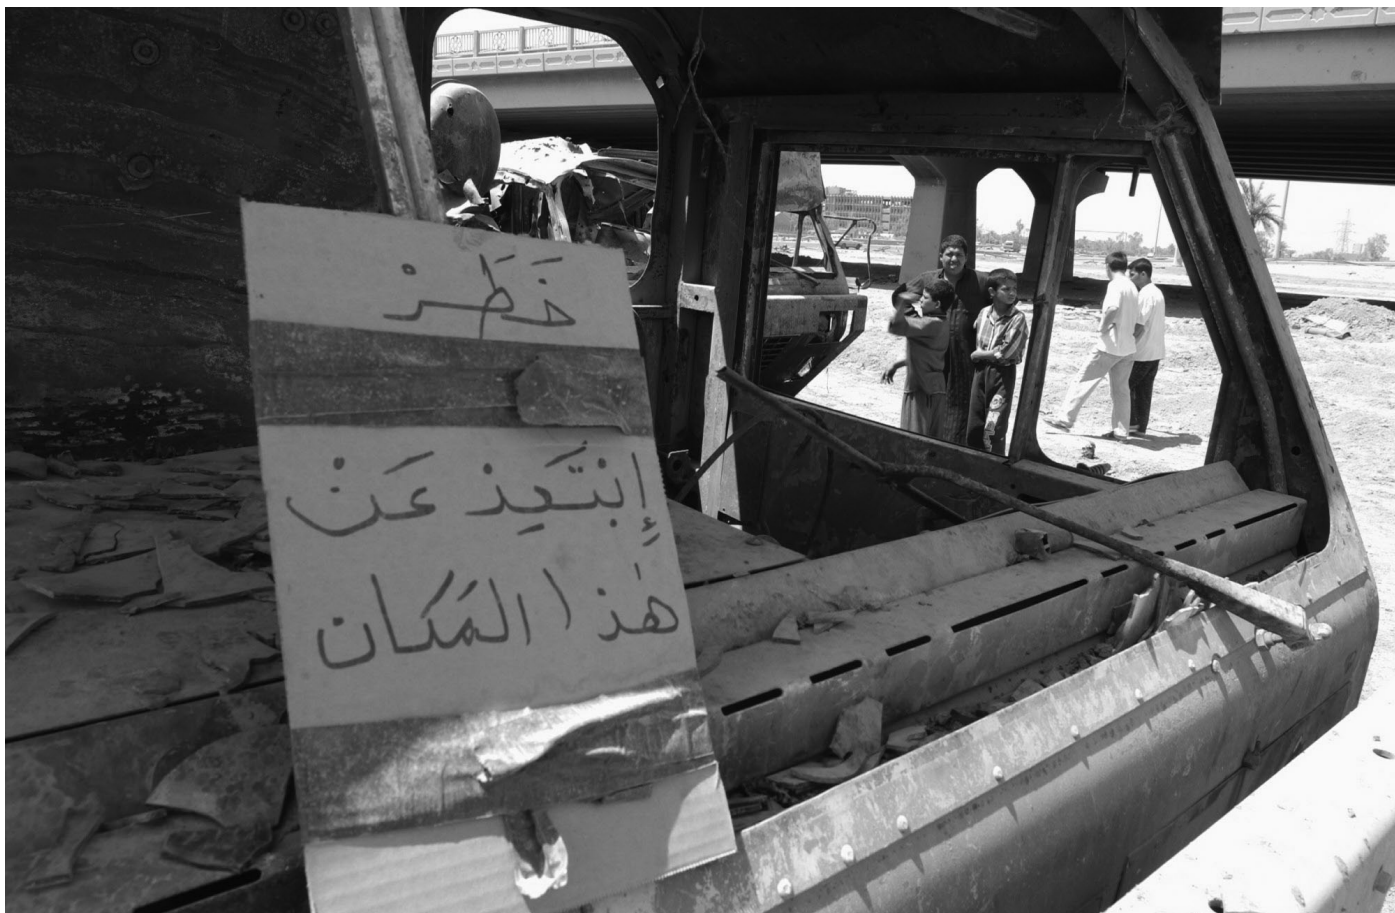 خَطَرْ
إِبْتَعِدْ عَنْ
هٰذا المَكان